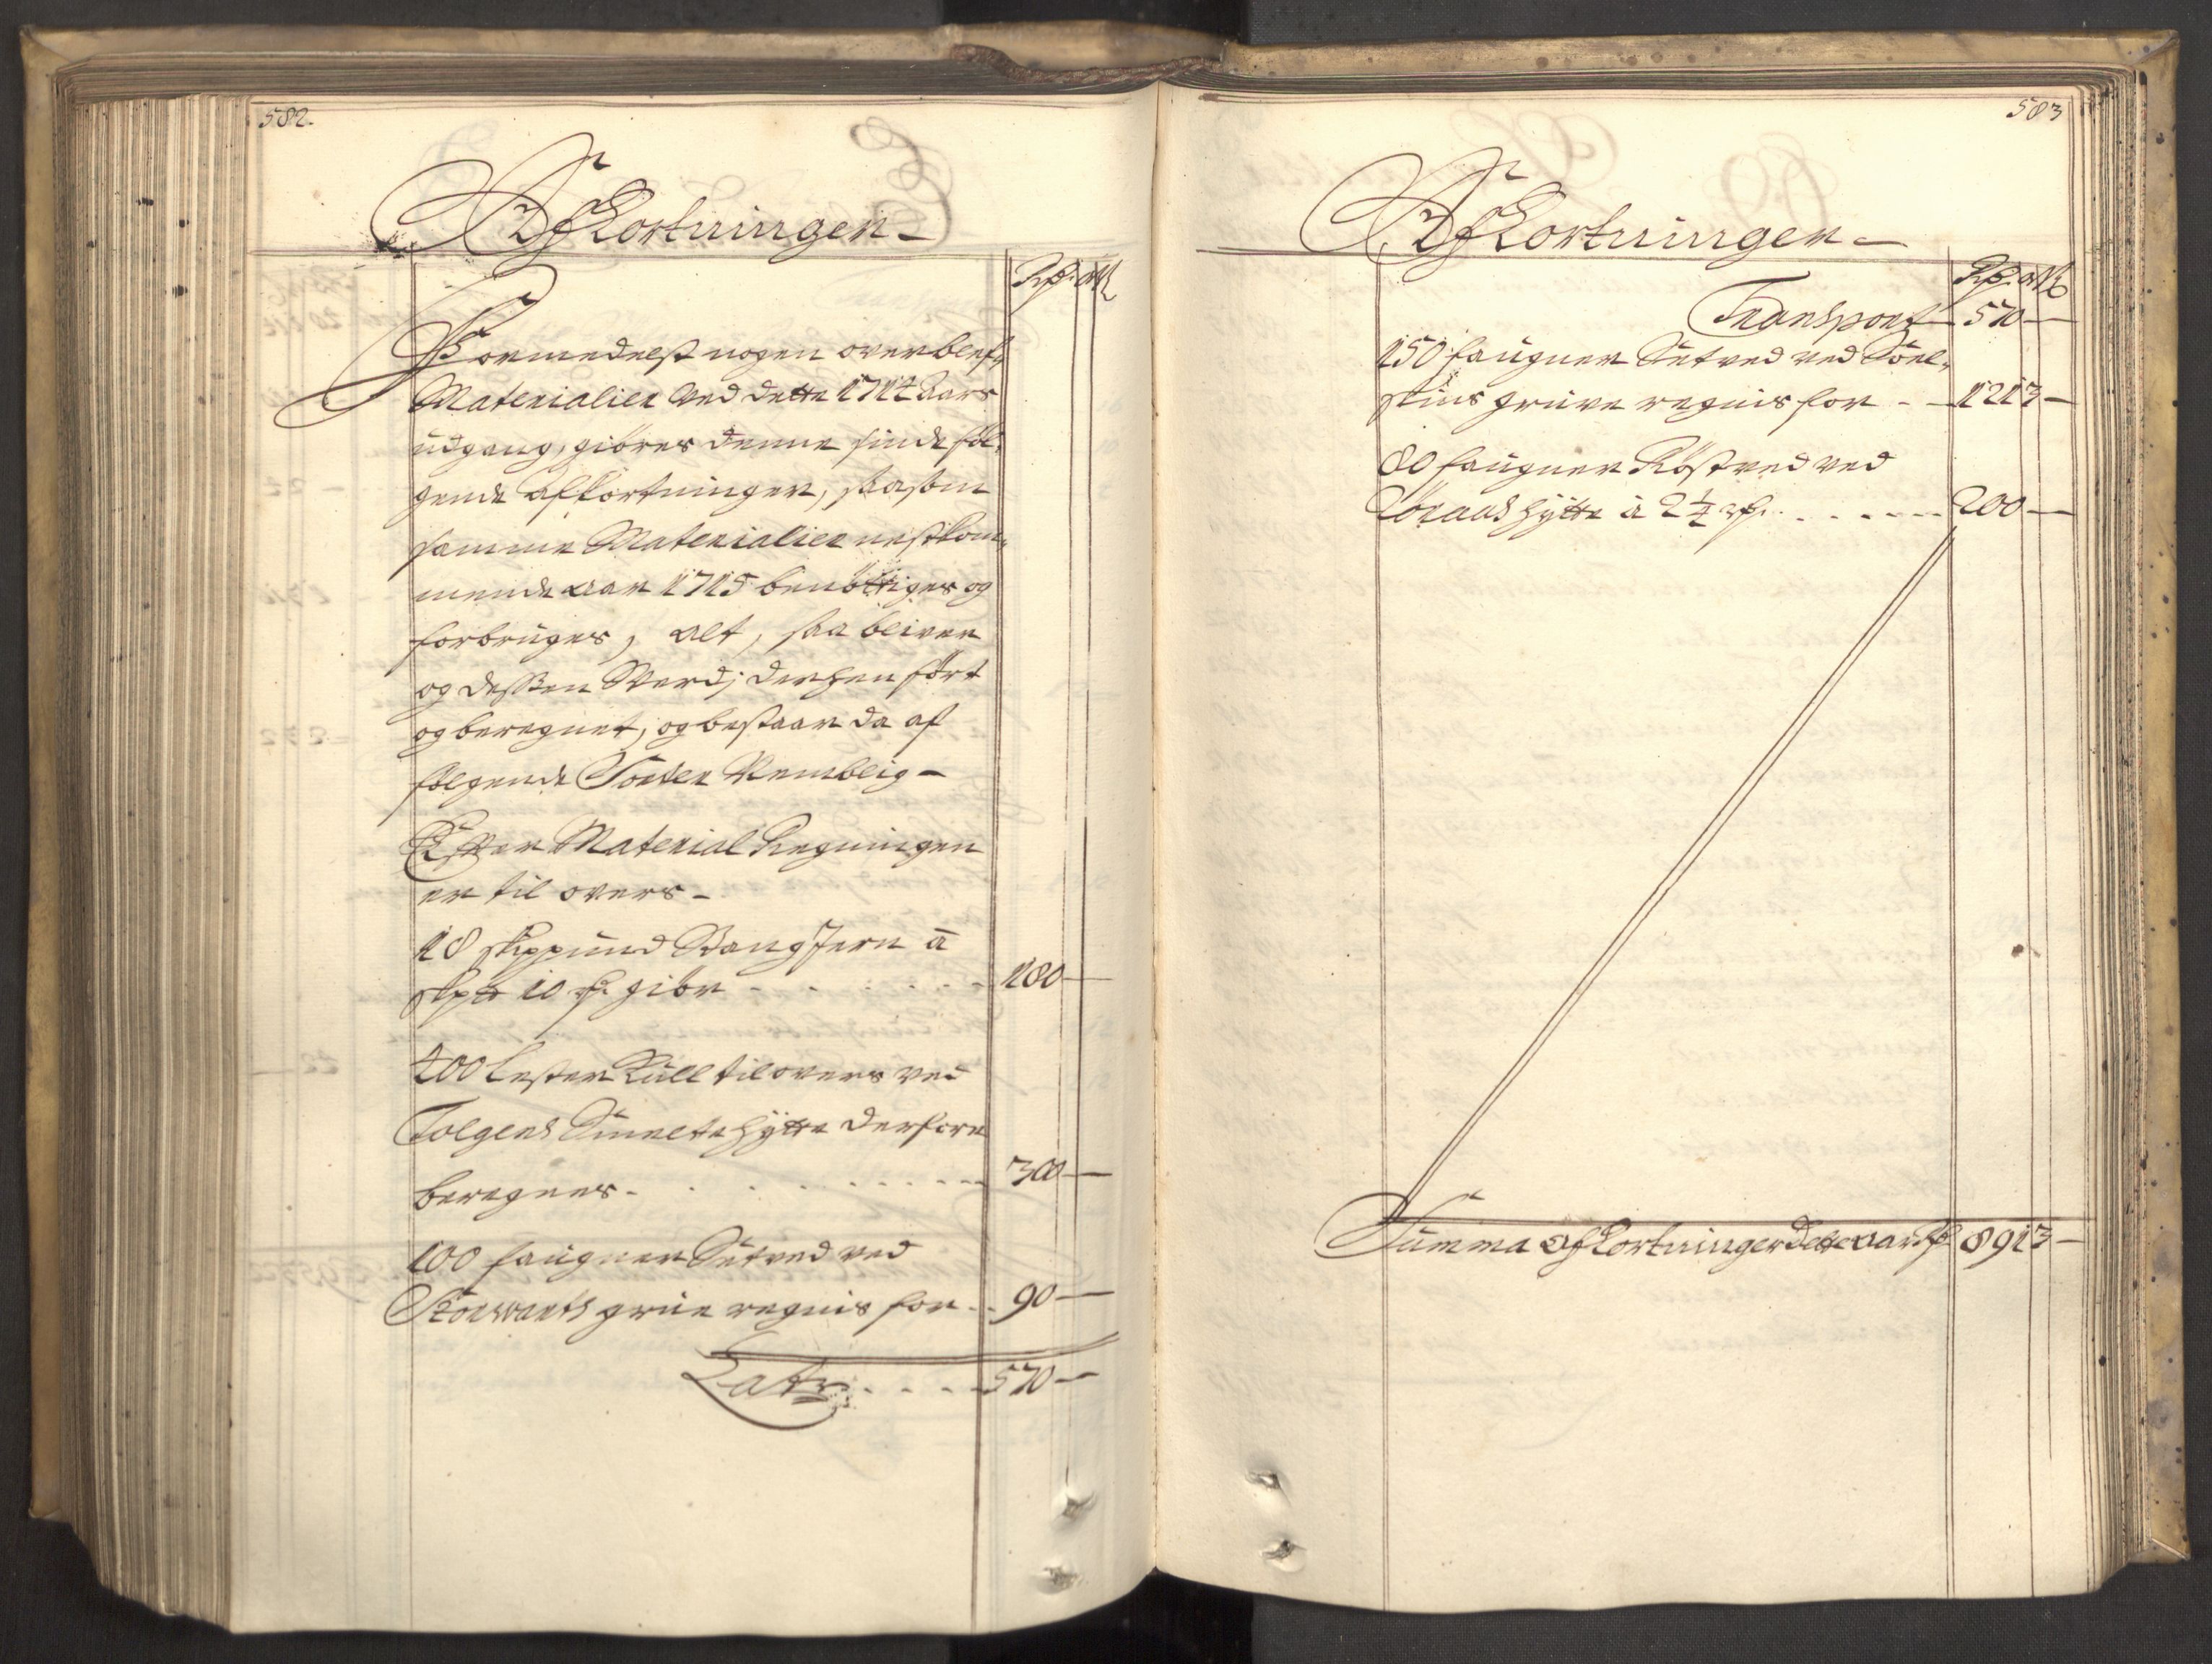 582.
Afkortninger
Rdr. mk
Formedelst nogen overblefne
Materialier ved dette 1714 Aars
udgang, giöres denne sinde föl-
gende afkortninger, saasom
samme Materialier nestkom-
mende aar 1715 benöttiges og
forbruges, alt, saa bliver
og dessen Werdj derhen fört
og beregnet, og bestaar da af
fölgende Sorter Nemblig -
Effter Material Regningen
er til overs -
18 skippund Stang Jern á
skp 10 rdr. giör - - - 180 -
400 lester Kull tilovers ved
Tolgens Smeltehytte derfore
beregnes - - - 300 -
100 faugner Setved ved
Storwarts grue regnis for - - 90 -
Latr - - - 570 -
583
Afkortninger -
Rdr. mk
Transport - 570 -
150 faugner Setved ved Soel-
skins gruve regnis for - - 121 3 -
80 faugner Röstved ved
hytte á 2 1/2 rdr. - - - 200 -
Summa Afkortninger dette aar Rdr 891 3 -